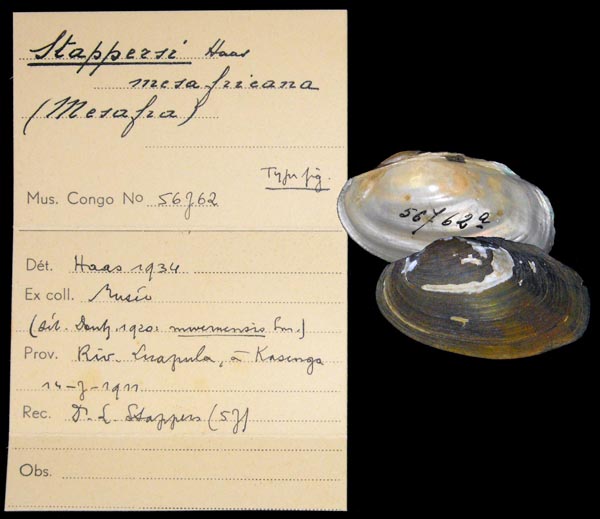 Stappersi Haas
mesafricana
(Mesafra)
Type fig.
Mus. Congo No 56762
Dét. Haas 1934
Ex coll. Musée
(dét. Dautz. 1920: mweruensis Sm.)
Prov. Riv. Luapula, à Kasenga
14-7-1911
Rec. Dr. L. Stappers (57)
Obs.
56762a